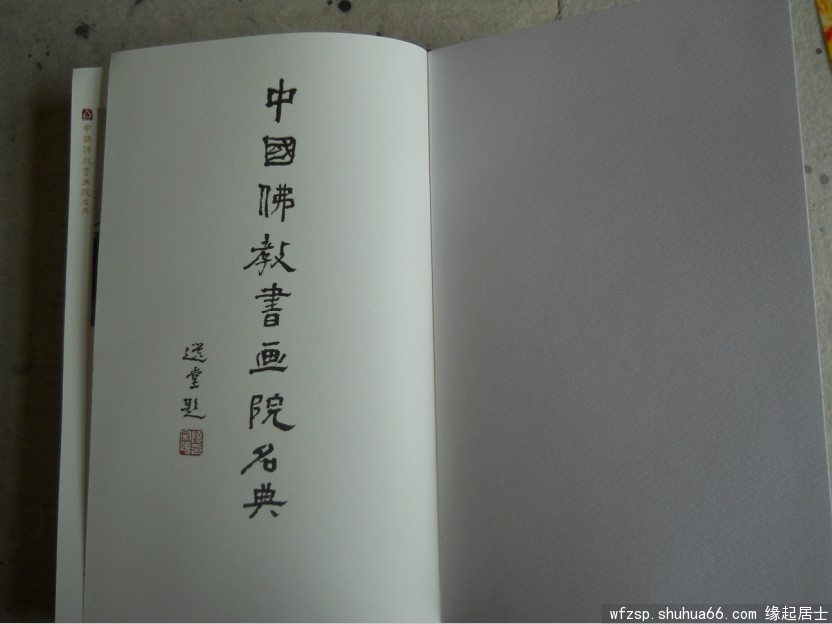 中國佛教書画院名典
選堂题
中國佛教書画院名典
wfzsp.shuhua66.com 缘起居士